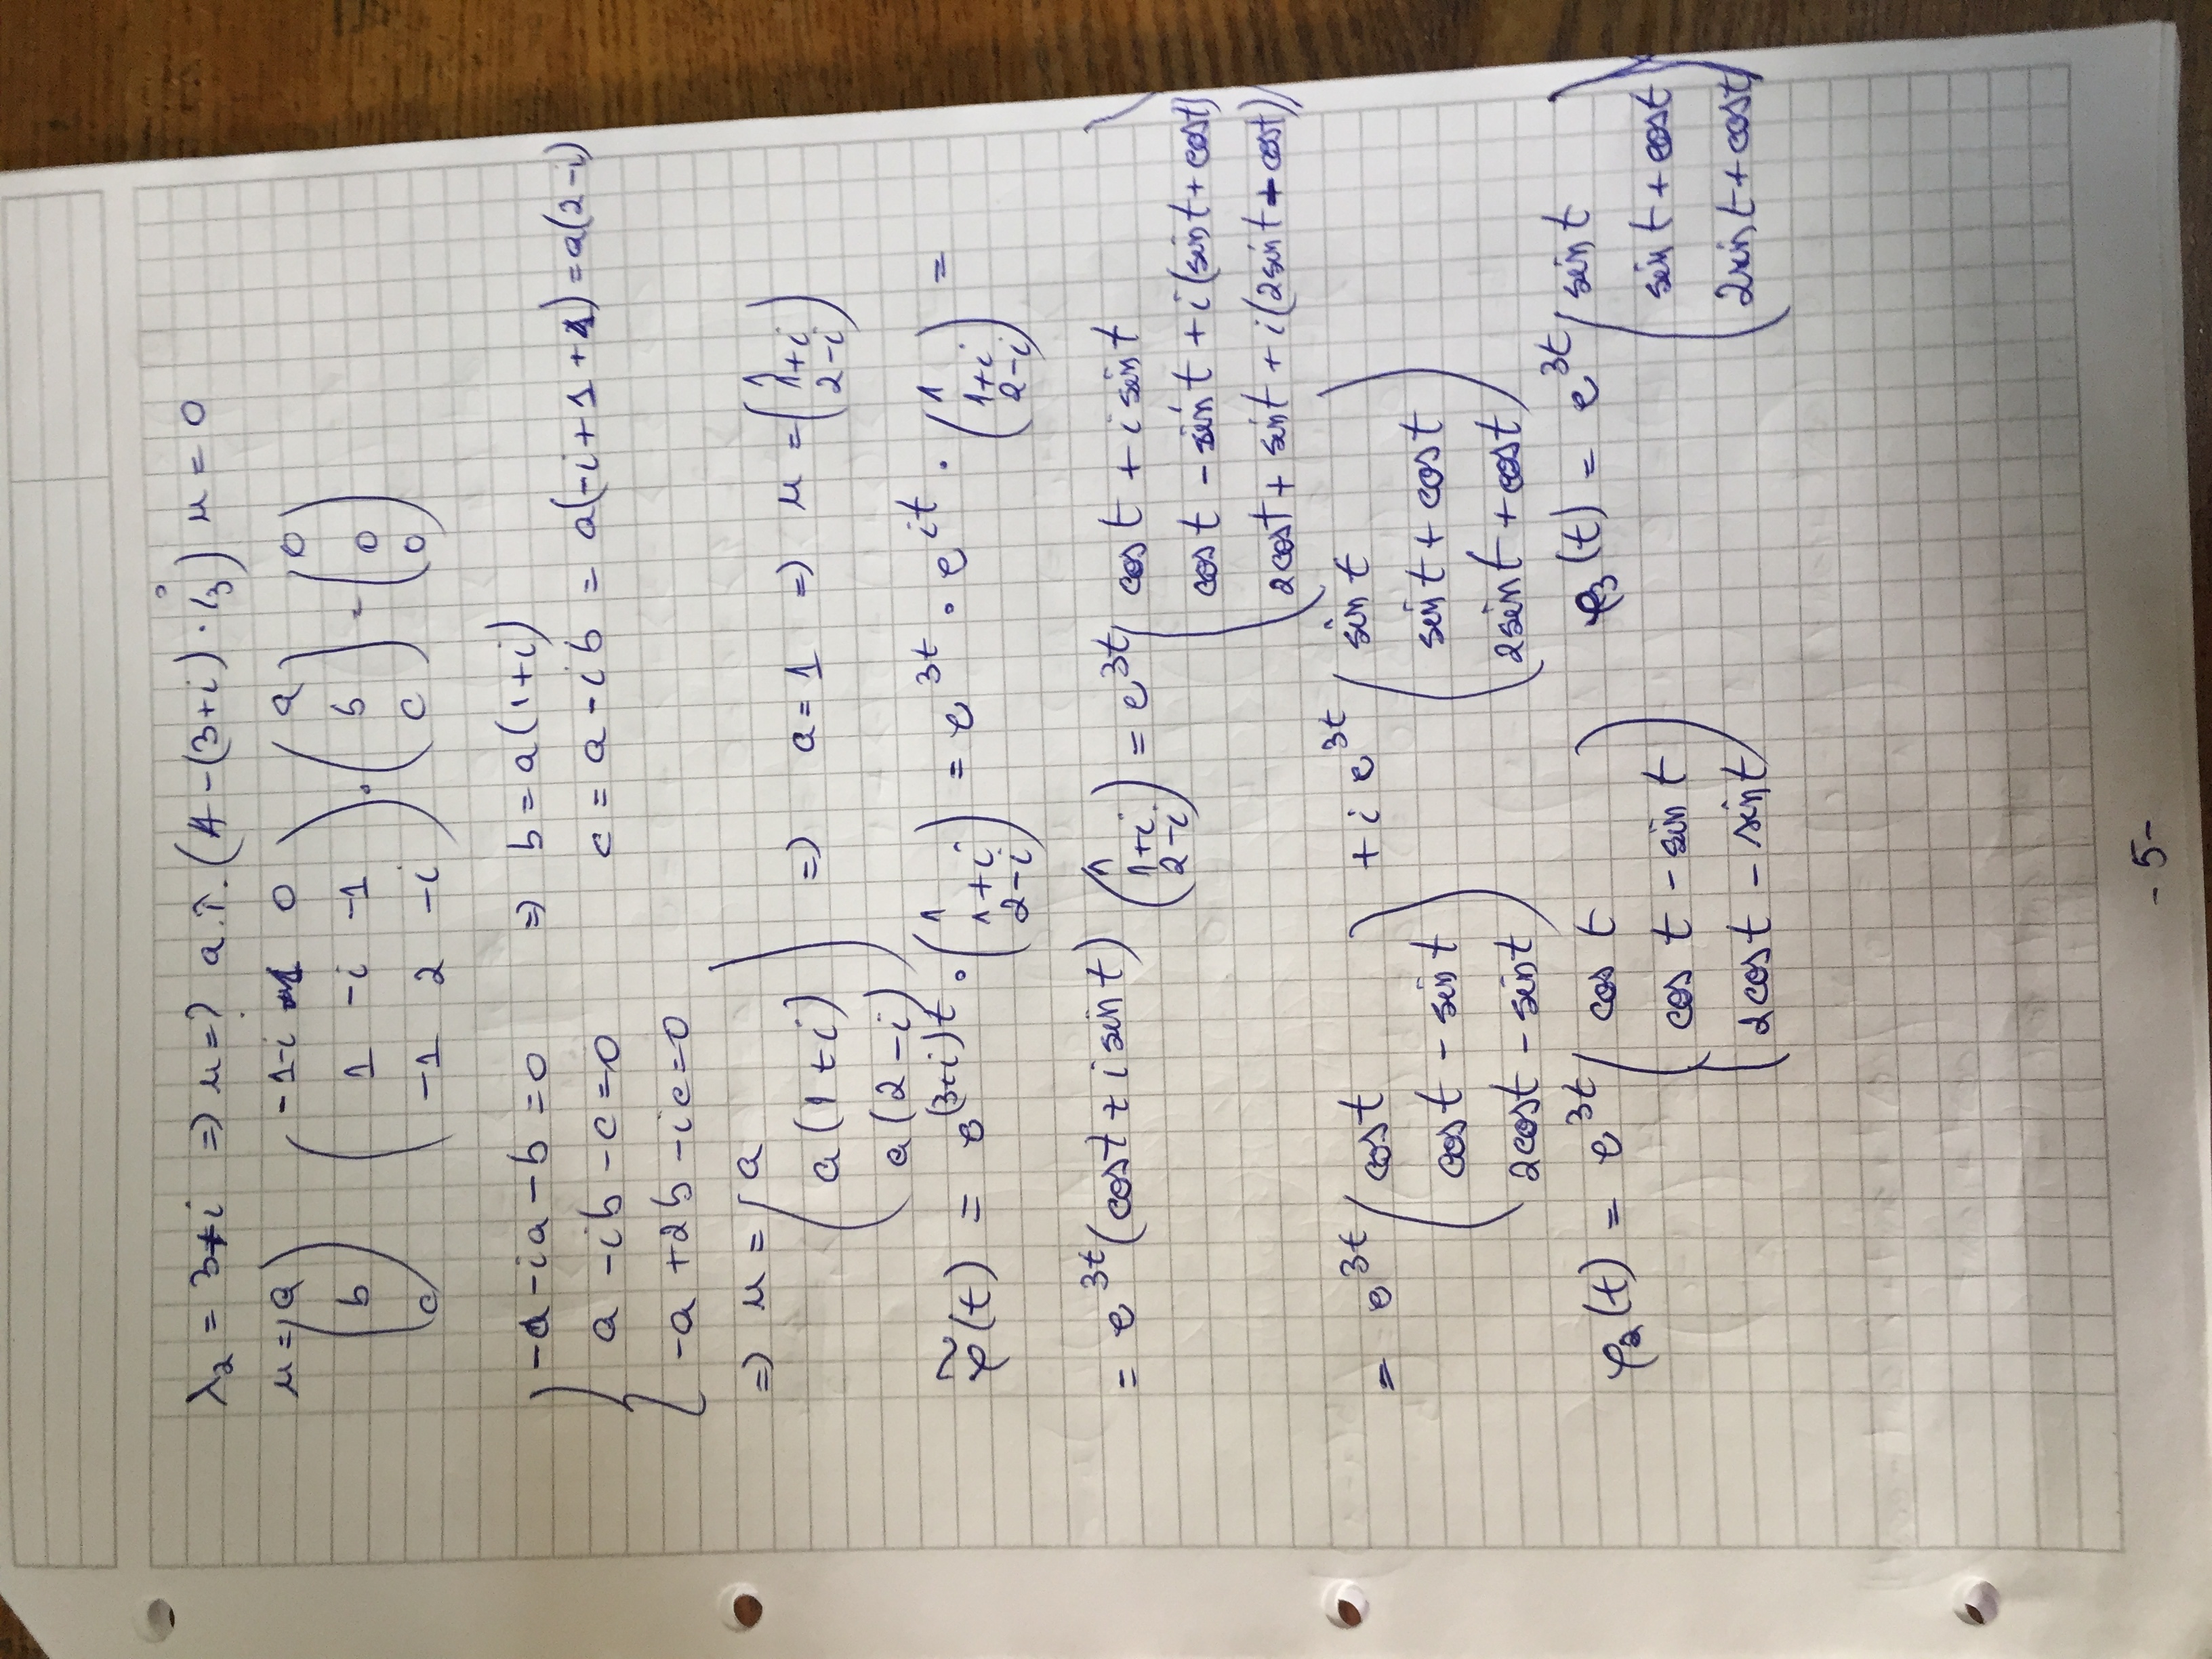 λ₂ = 3+i => u=? a.î. (A-(3+i)·I₃) u = 0
u = (a b c) (-1-i 1 0 ; 1 -i -1 ; -1 2 -i) · (a b c) = (0 0 0)
-a-ia-b=0 => b=a(1+i)
a-ib-c=0 c = a-ib = a(-i+1+1)=a(2-i)
-a+2b-ic=0
=> u = (a ; a(1+i) ; a(2-i)) => a=1 => u = (1 ; 1+i ; 2-i)
φ̃(t) = e^(3+i)t · (1 ; 1+i ; 2-i) = e^3t · e^it · (1 ; 1+i ; 2-i) =
= e^3t (cost+isint) (1 ; 1+i ; 2-i) = e^3t (cost + isint ; cost - sint + i(sint+cost) ; 2cost + sint + i(2sint-cost))
= e^3t (cost ; cost-sint ; 2cost-sint) + i e^3t (sint ; sint+cost ; 2sint+cost)
φ₂(t) = e^3t (cost ; cost-sint ; 2cost-sint) φ₃(t) = e^3t (sint ; sint+cost ; 2sint+cost)
-5-